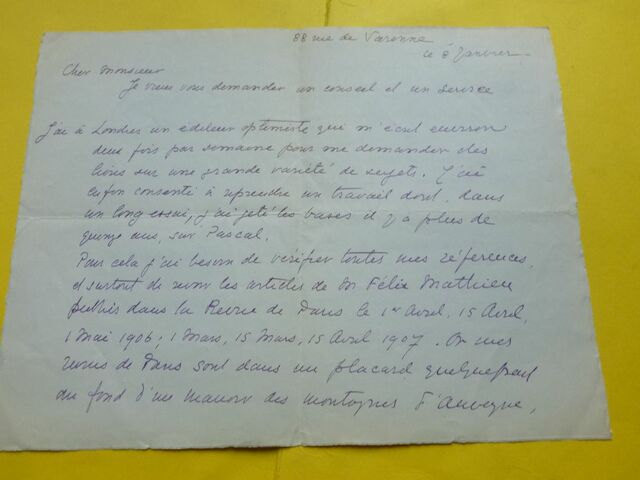 88 rue de Varenne
ce 8 Janvier
Cher Monsieur
Je viens vous demander un conseil et un service
J'ai à Londres un editeur optimiste qui m'écrit environ
deux fois par semaine pour me demander des
livres sur une grande variété de sujets. J'ai
enfin consenti à reprendre un travail dont, dans
un long essai, j'ai jeté les bases il y a plus de
quinze ans, sur Pascal.
Pour cela j'ai besoin de vérifier toutes mes références,
et surtout de revoir les articles de Mr Félix Mathieu
publiés dans la Revue de Paris le 1er Avril, 15 Avril,
1 Mai 1906; 1 Mars, 15 Mars, 15 Avril 1907. Or mes
revues de Paris sont dans un placard quelquepart
au fond d'un manoir des montagnes d'Auvergne,